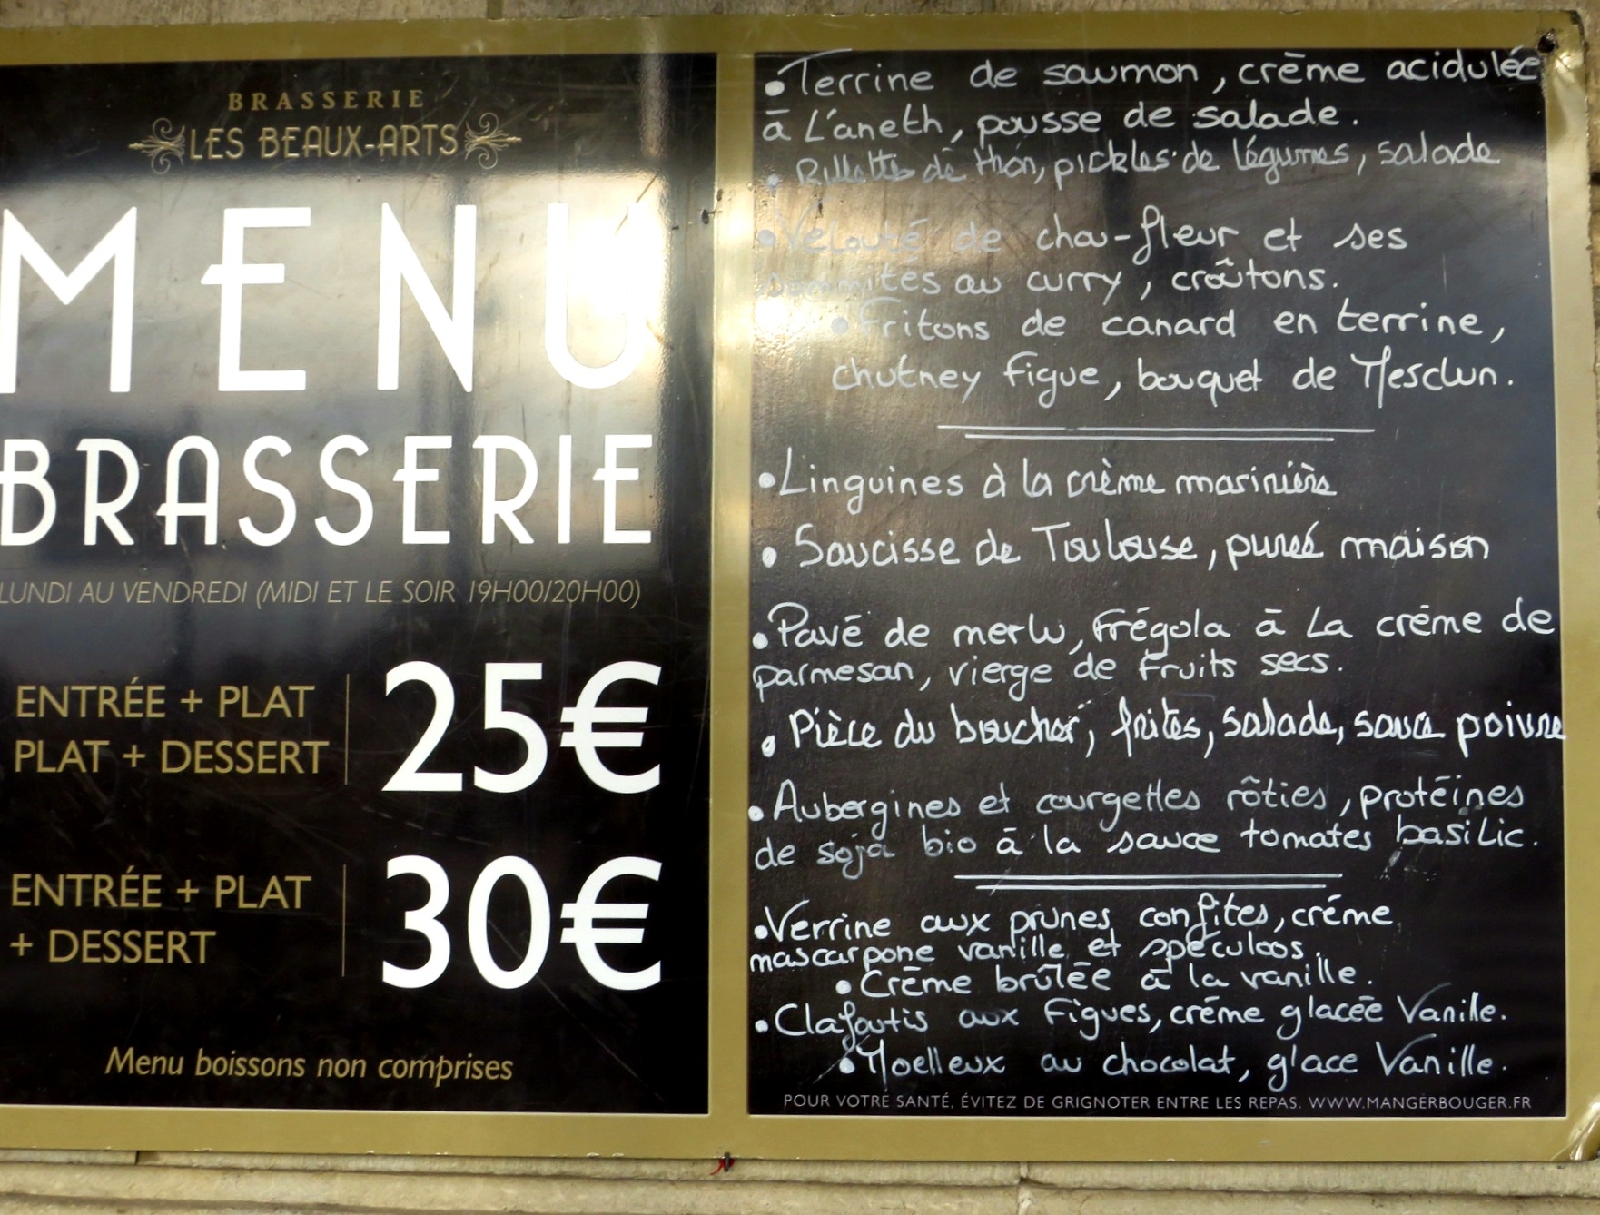 BRASSERIE
LES BEAUX-ARTS
MENU
BRASSERIE
LUNDI AU VENDREDI (MIDI ET LE SOIR 19H00/20H00)
ENTRÉE + PLAT
PLAT + DESSERT
25€
ENTRÉE + PLAT
+ DESSERT
30€
Menu boissons non comprises
• Terrine de saumon, crème acidulée
à L'aneth, pousse de salade.
• Rillettes de thon, pickles de légumes, salade
• Velouté de chou-fleur et ses
sommités au curry, croûtons.
• Fritons de canard en terrine,
chutney figue, bouquet de Mesclun.
• Linguines à la crème marinière
• Saucisse de Toulouse, purée maison
• Pavé de merlu, Frégola à La crème de
parmesan, vierge de Fruits secs.
• Pièce du boucher, frites, salade, sauce poivre
• Aubergines et courgettes rôties, protéines
de soja bio à la sauce tomates basilic.
• Verrine aux prunes confites, crème
mascarpone vanille et spéculoos.
• Crème brûlée à la vanille.
• Clafoutis aux Figues, crème glacée Vanille.
• Moelleux au chocolat, glace Vanille.
POUR VOTRE SANTÉ, ÉVITEZ DE GRIGNOTER ENTRE LES REPAS. WWW.MANGERBOUGER.FR